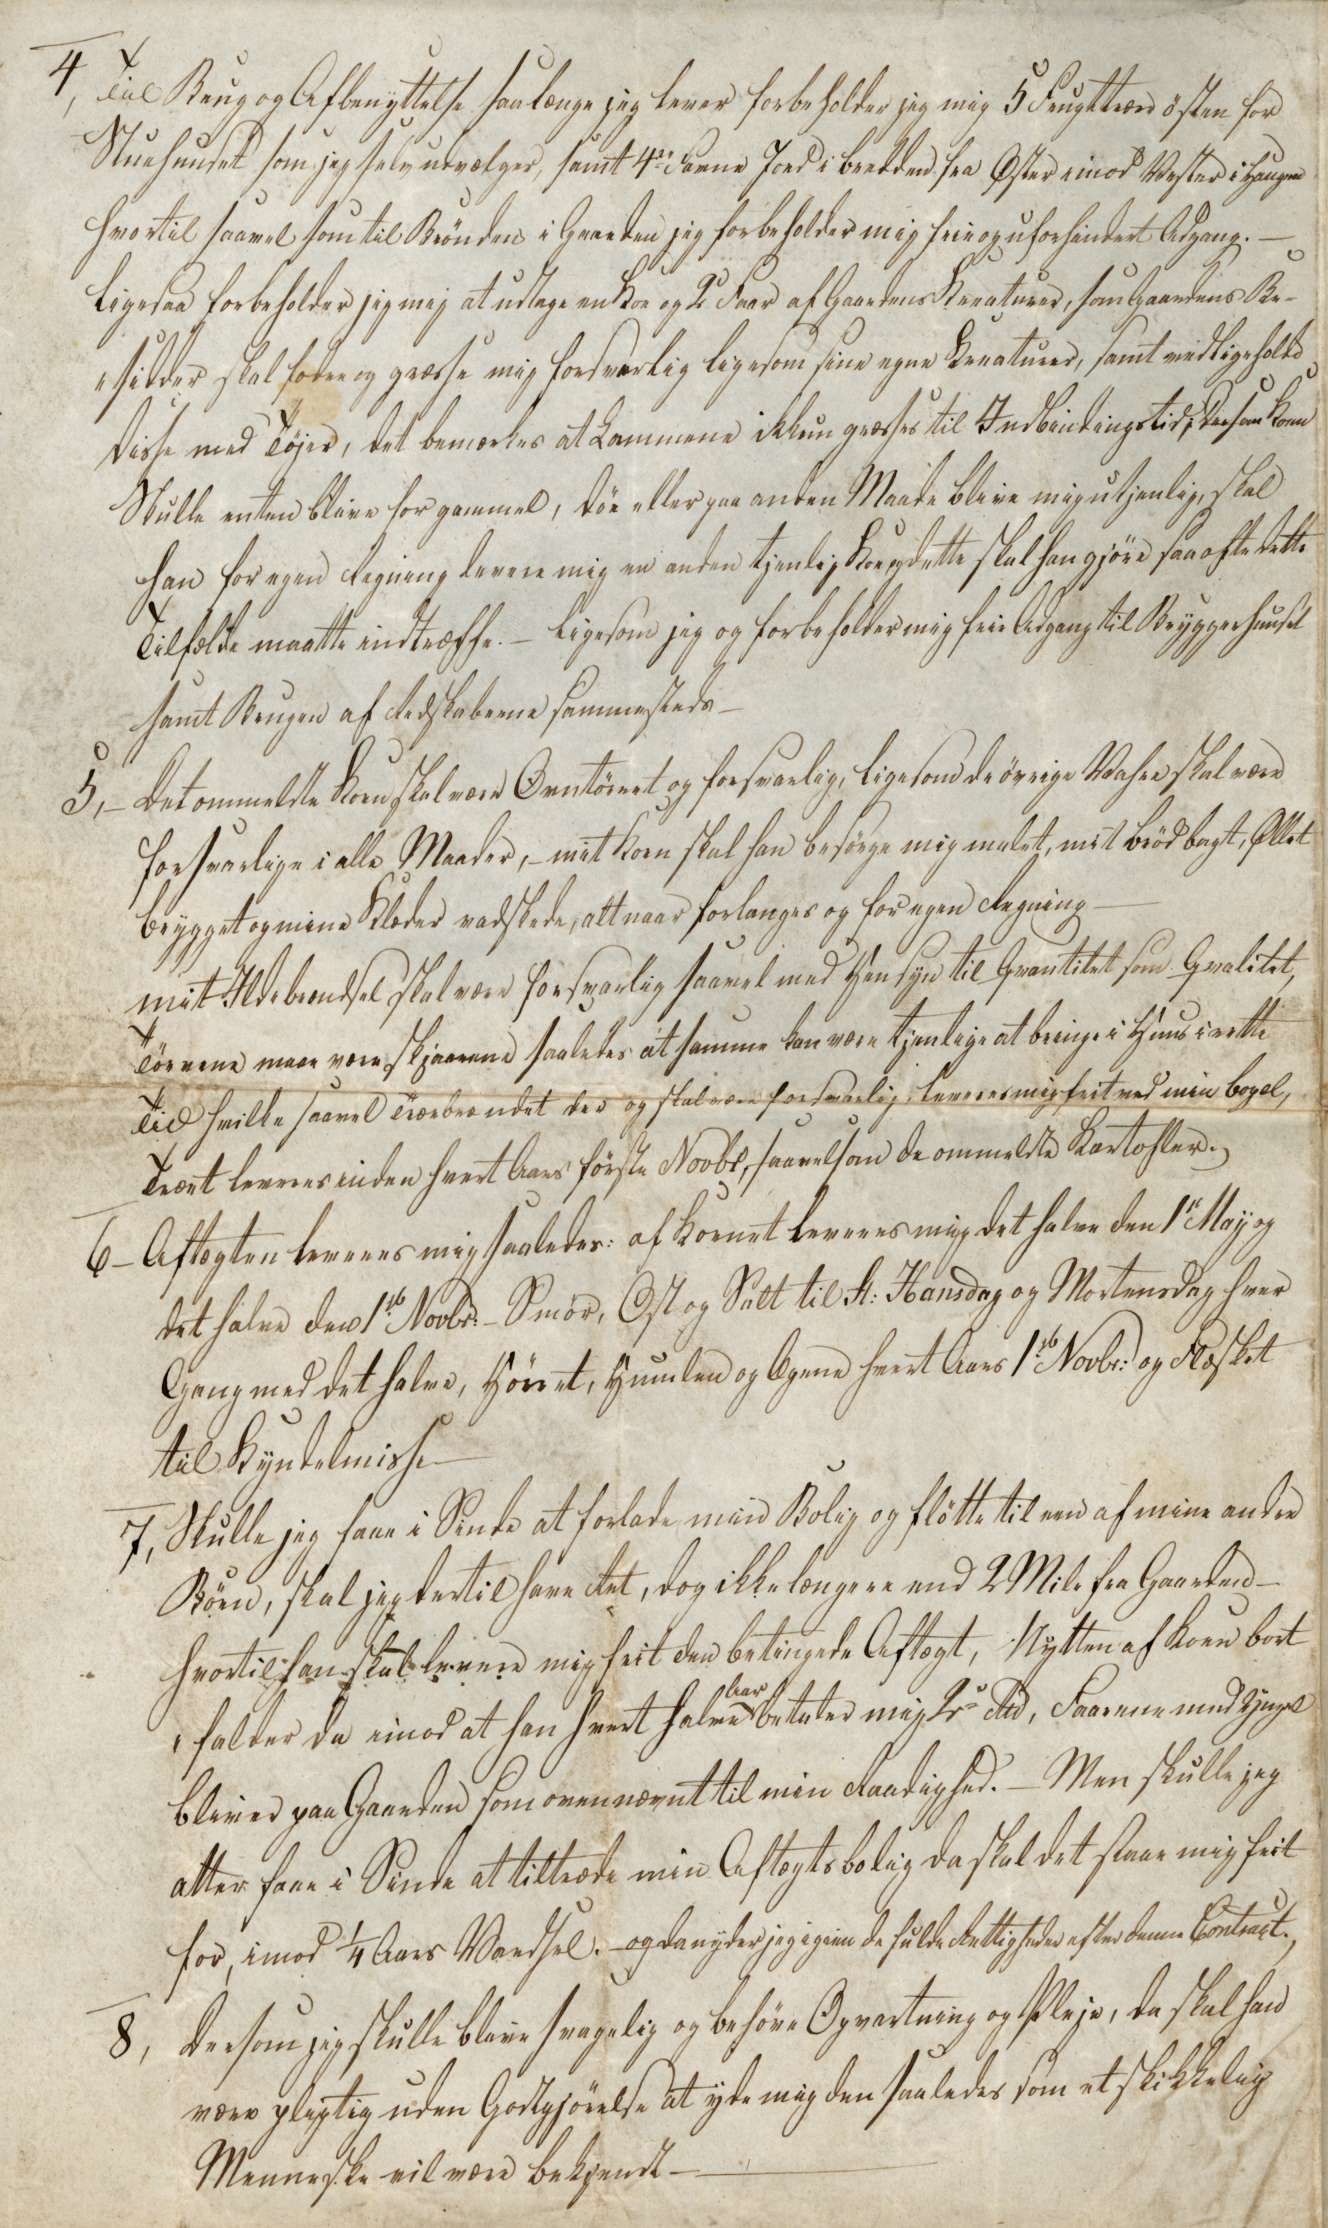 4, Til Brug og Afbenyttelse saalænge jeg lever forbeholder jeg mig 5 Frugttræer østen for
Stuehuuset som jeg selv udvælger, samt 4re Favne Jord i bredden fra Øster imod Vester i Haugen
hvortil saavel som til Brønden i Gaarden jeg forbeholder mig frie og uforhindret Adgang. —
Ligesaa forbeholder jeg mig at udtage en Koe og 2 Faar af Gaardens Kreaturer, som Gaardens Be-
sidder skal fodre og græsse mig forsvarlig ligesom sine egne Kreaturer, samt vedligeholde
disse med Tøjer, det bemærkes at Lammene ikkun græsses til Indbindingstid, Dersom Koen
Skulle enten blive for gammel, döe eller paa anden Maade blive mig utjenlig, skal
han for egen Regning levere mig en anden tjenlig Koe og dette skal han gjöre saa ofte dette
Tilfælde maatte indtræffe. — Ligesom jeg og forbeholder mig frie Adgang til Bryggerhuuset
samt Brugen af Redskaberne sammesteds —
5, — Det ommeldte Korn skal være Ovntörret og forsvarlig, ligesom de övrige Vahre skal være
forsvarlige i alle Maader, — mit Korn skal han besörge mig malet, mit bröd bagt, Øllet
brygget og mine Klæder vadskede, alt naar forlanges og for egen Regning —
mit Ildebrændsel skal være forsvarlig saavel med Hensyn til Qvantitet som Qvalitet,
Törvene maae være skjaarne saaledes at samme kan være tjenlige at bringe i Huus i rette
Tid hvilke saavel Træebrændet der og skal være forsvarlig, leveres mig frit ved min bopæl,
Træet leveres inden hvert Aars förste Novbr, saavelsom de ommeldte Kartofler.
6 — Aftægten leveres mig saaledes: af Kornet leveres mig det halve den 1te May og
det halve den 1te Novbr: — Smör, Ost og Salt til St: Hansdag og Mortensdag hver
Gang med det halve, Hörret, Humlen og Ægene hvert Aars 1te Novbr: og Flæsket
til Kyndelmisse —
7, Skulle jeg faae i Sinde at forlade min Bolig og flötte til een af mine andre
Börn, skal jeg dertil have Ret, dog ikke længere end 2 Mile fra Gaarden —
hvortil han skal levere mig frit den betingede Aftægt, Nytten af Koen bort
falder da imod at han hvert halve Aar betaler mig 2 Rd, Faarene med Yngel
bliver paa Gaarden som ovennævnt til min Raadighed. — Men skulle jeg
atter faae i Sinde at tiltræde min Aftægtsbolig da skal det staae mig frit
for, imod 1/4 Aars Varsel. — og da nyder jeg igien de fulde Rettigheder efter denne Contract.
8, Dersom jeg skulle blive svagelig og behöve Opvartning og Pleje, da skal han
være pligtig uden Godtgjörelse at yde mig den saaledes som et skikkelig
Menneske vil være bekjendt —